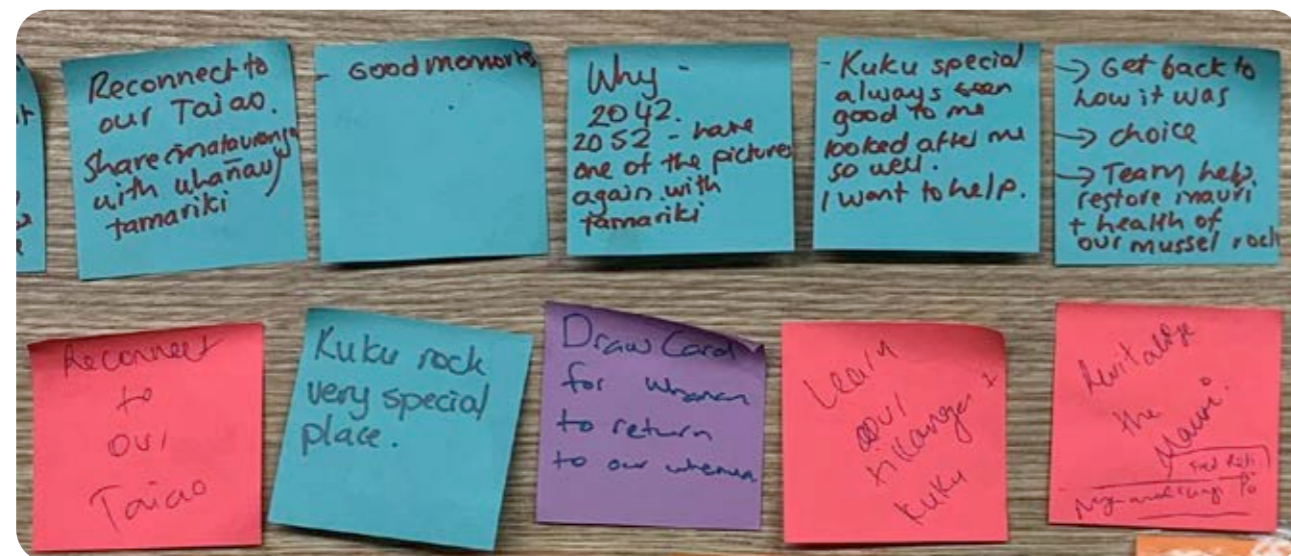 Reconnect to
our Taiao.
Share mātauranga
with whānau
tamariki
- Good memories
Why -
2042.
2052 - have
one of the pictures
again with
tamariki
- Kuku special
always been
good to me
looked after me
so well.
I want to help.
→ Get back to
how it was
→ choice
→ Team help,
restore mauri
+ health of
our mussel rock
Reconnect
to
our
Taiao
Kuku rock
very special
place.
Draw Card
for whanau
to return
to our whenua
Learn
our
tikanga
kuku
Revitalize
the
Mauri.